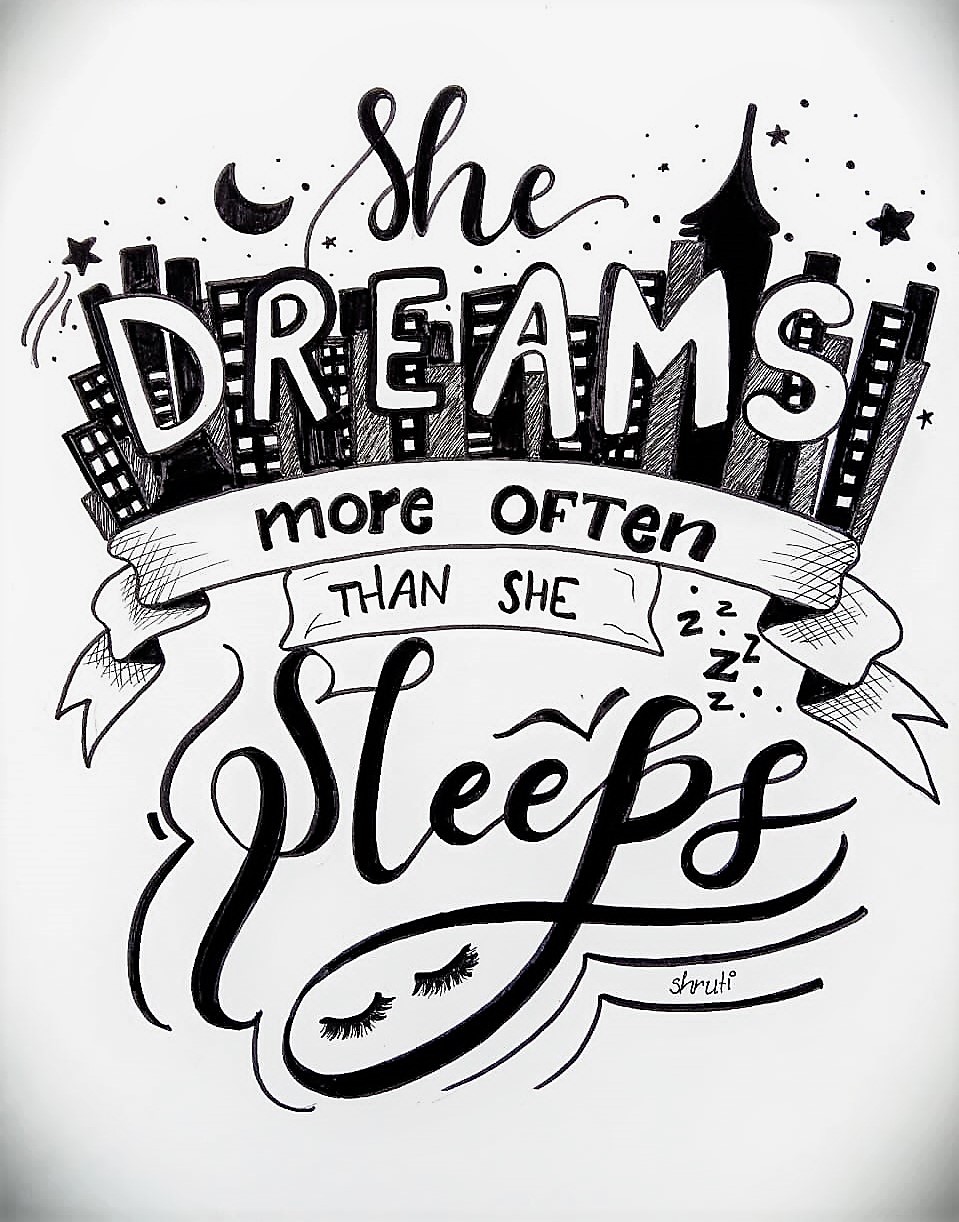 She
DREAMS
more OFTen
THAN SHE
z z
z z
z
Sleeps
shruti